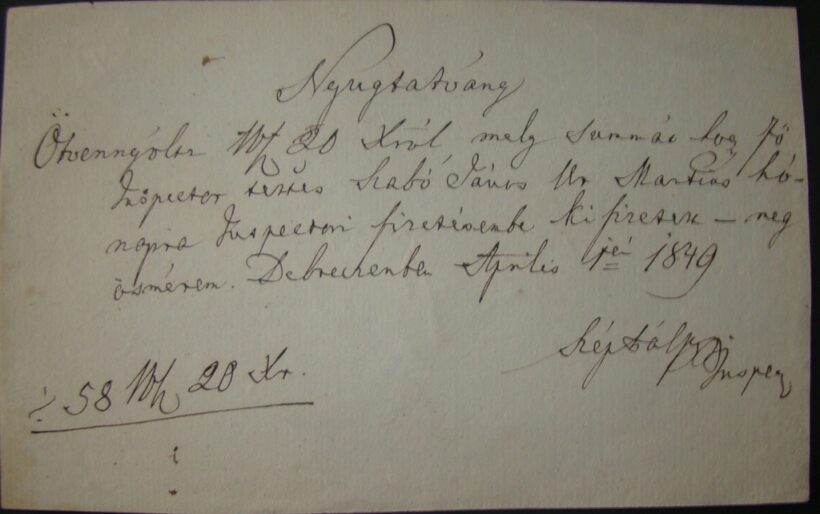 Nyugtatvány
Ötvennyóltz Wf 20 Xról mely summát hog Fő
Inspector tettes Szabó János Ur Martius hó-
napra Inspectori fizetésembe ki fizetett – meg
ösmérem. Debreczenben Aprilis 1jei 1849
58 Wf 20 Xr.
Inspect